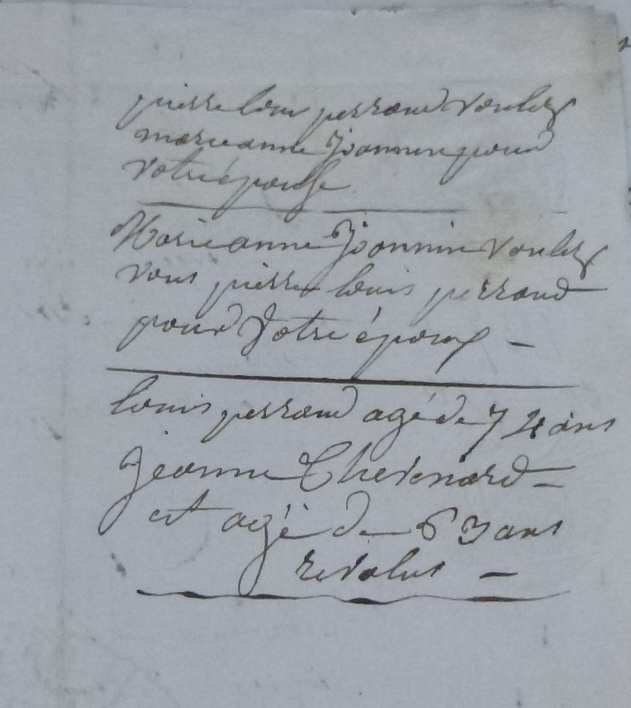 pierre louis perraud voulez
marieanne joannin pour
votre épouse
Marieanne Joannin voulez
vous pierre louis perraud
pour votre époux -
louis perraud agé de 74 ans
jeanne Chevenard -
et agé de 63 ans
revolus -